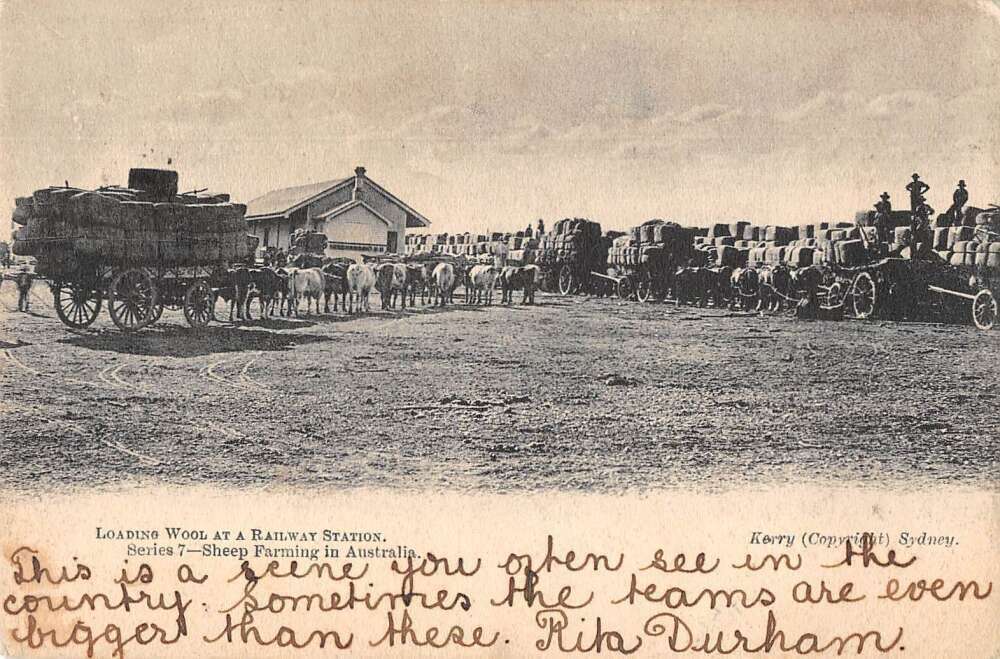 LOADING WOOL AT A RAILWAY STATION.
Series 7—Sheep Farming in Australia.
Kerry (Copyright) Sydney.
This is a scene you often see in the
country. Sometimes the teams are even
bigger than these. Rita Durham.